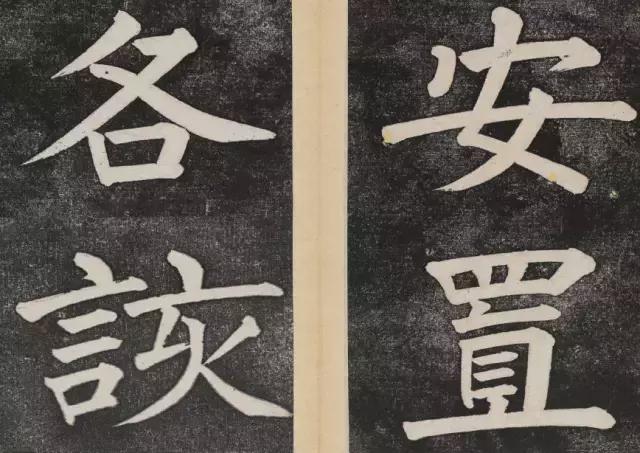 安置
各該